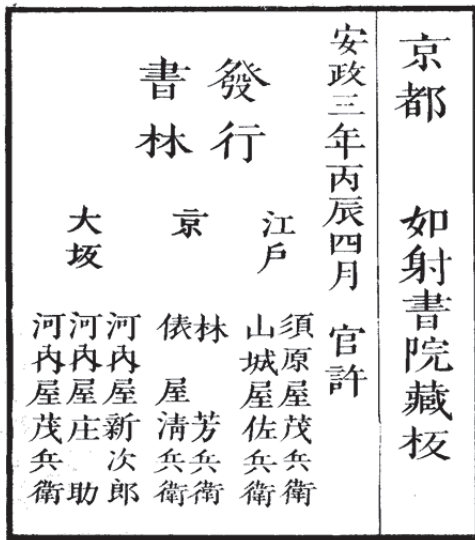 京都　如射書院藏板
安政三年丙辰四月　官許
發行
書林
江戸
須原屋茂兵衛
山城屋佐兵衛
京
林　芳兵衛
俵屋清兵衛
大坂
河内屋新次郎
河内屋庄助
河内屋茂兵衛